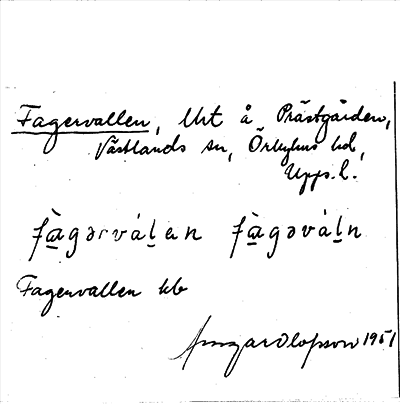 Fagervallen, Urt å Prästgården,
Västlands sn, Örbyhus hd,
Upps. l.
fàgərválen fàgəváln
Fagervallen kb
Ingvar Olofsson 1951